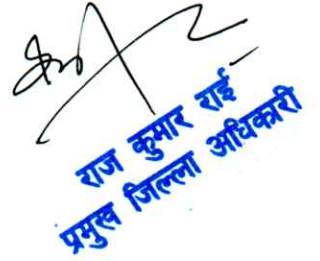 राज कुमार राई
प्रमुख जिल्ला अधिकारी